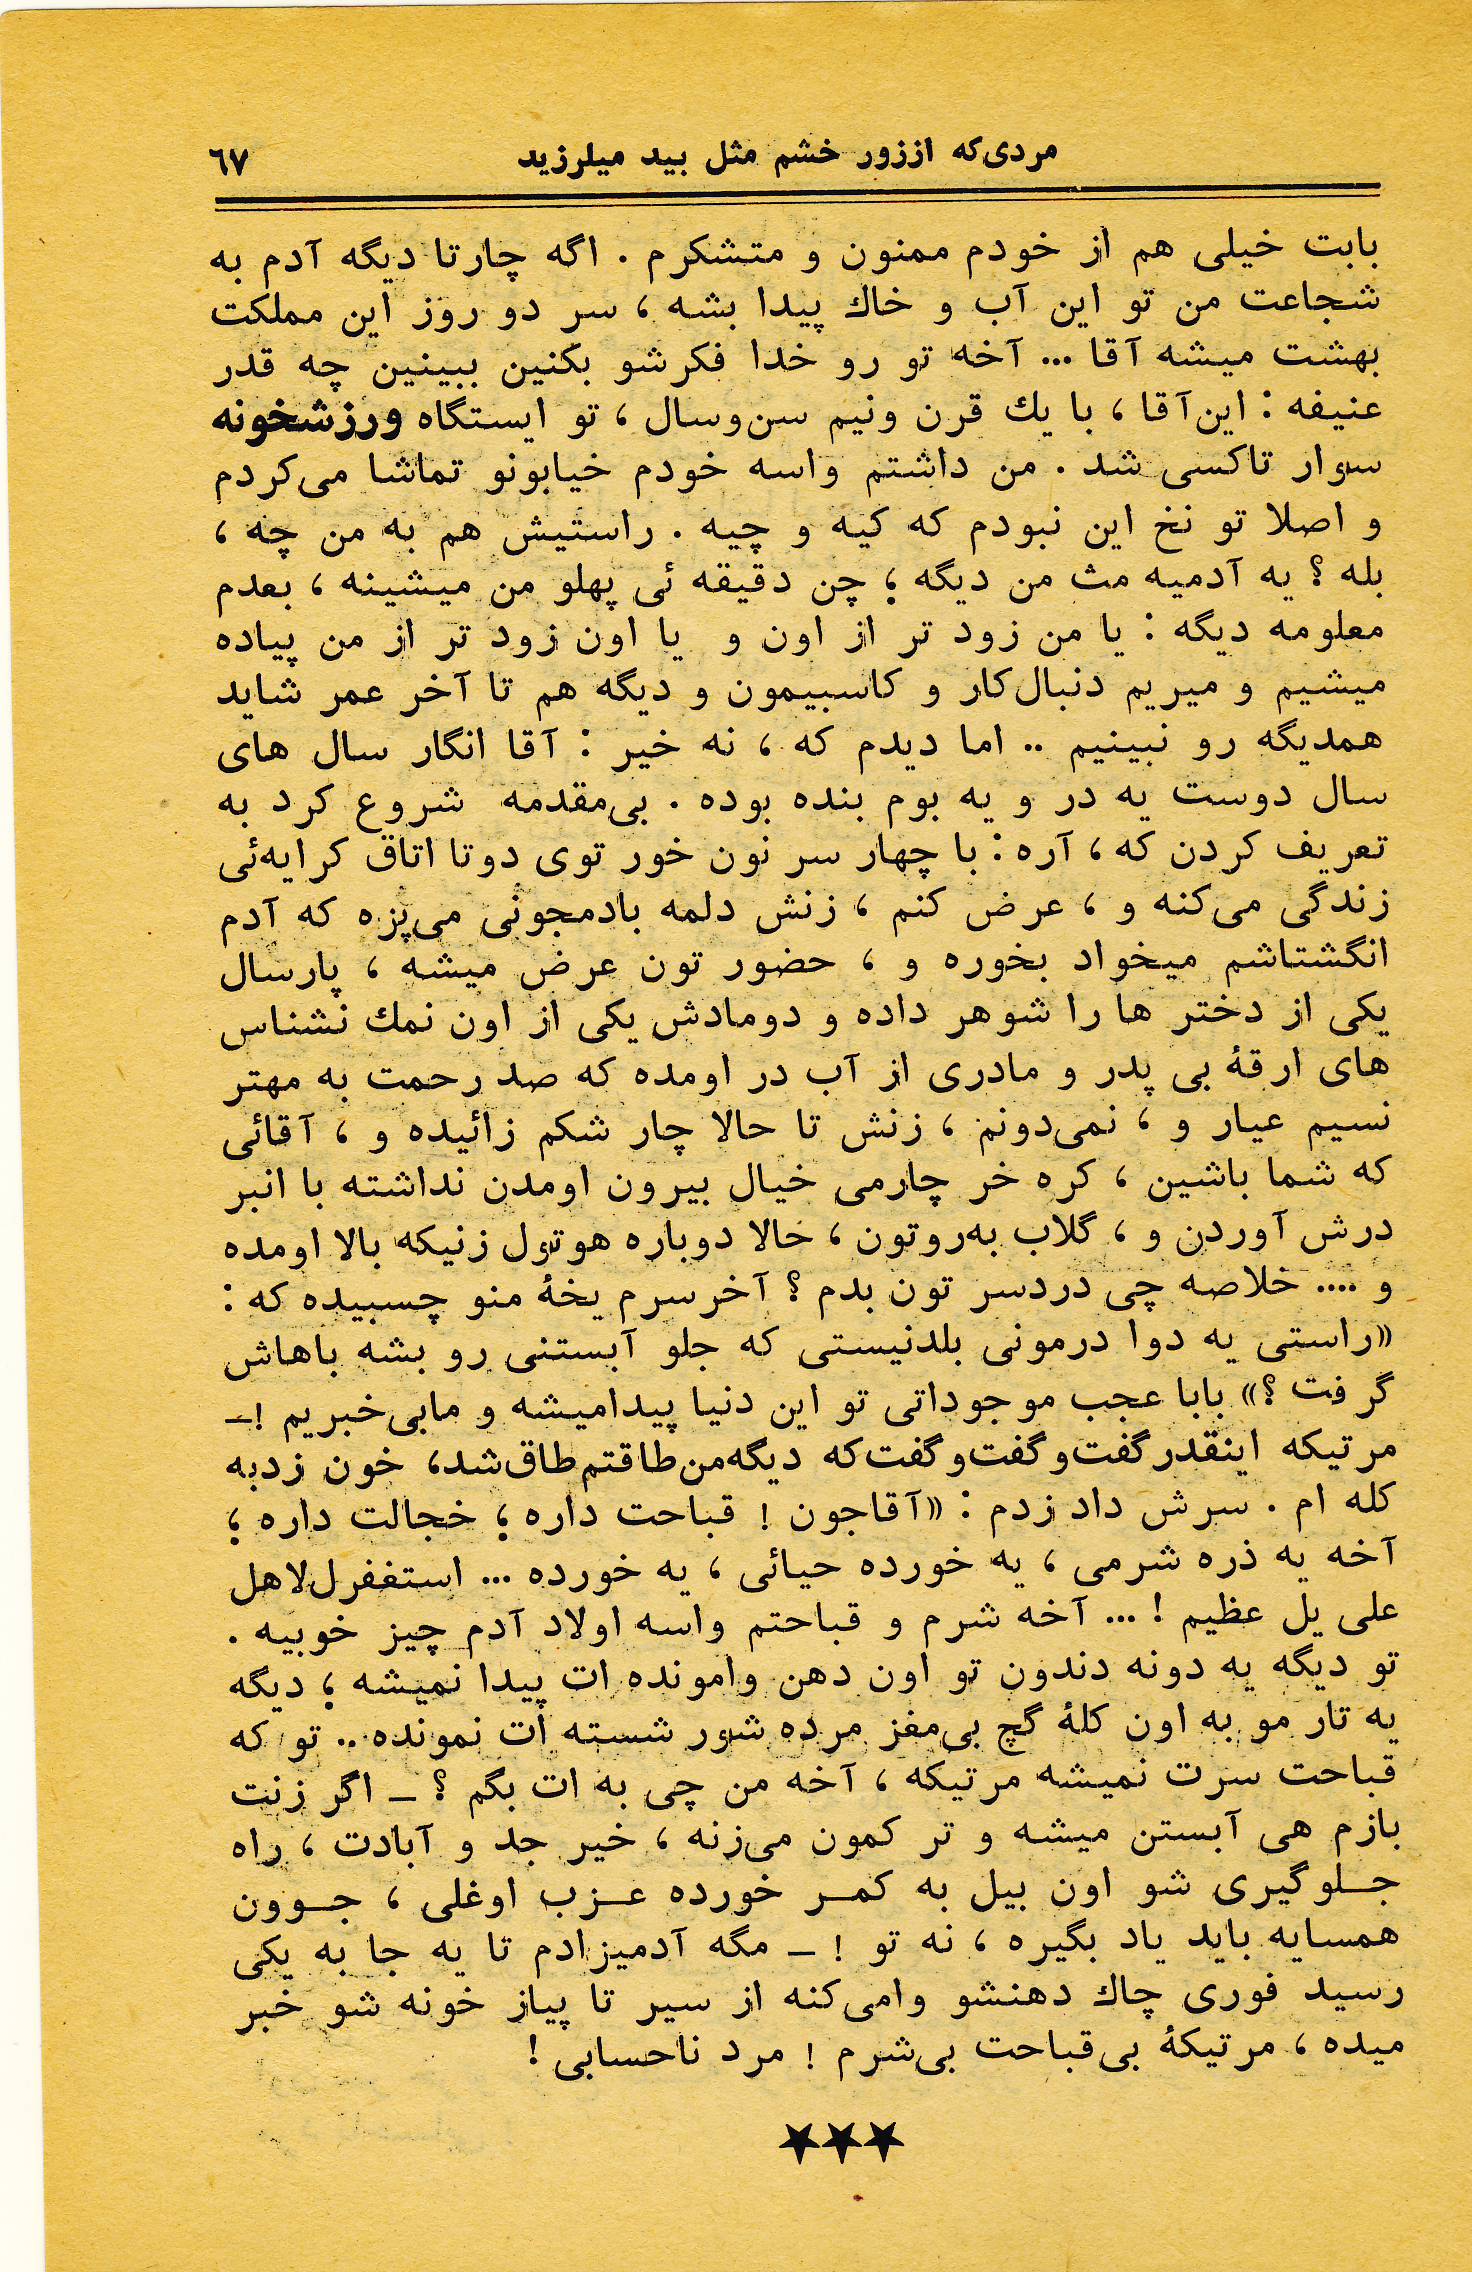 مردی‌که اززور خشم مثل بید میلرزید ٦٧
بابت خیلی هم از خودم ممنون و متشکرم . اگه چارتا دیگه آدم به
شجاعت من تو این آب و خاك پیدا بشه ، سر دو روز این مملکت
بهشت میشه آقا ... آخه تو رو خدا فکرشو بکنین ببینین چه قدر
عنیفه : این‌آقا ، با یك قرن ونیم سن‌وسال ، تو ایستگاه ورزشخونه
سوار تاکسی شد . من داشتم واسه خودم خیابونو تماشا می‌کردم
و اصلا تو نخ این نبودم که کیه و چیه . راستیش هم به من چه ،
بله ؟ یه آدمیه مث من دیگه ؛ چن دقیقه ئی پهلو من میشینه ، بعدم
معلومه دیگه : یا من زود تر از اون و یا اون زود تر از من پیاده
میشیم و میریم دنبال‌کار و کاسبیمون و دیگه هم تا آخر عمر شاید
همدیگه رو نبینیم .. اما دیدم که ، نه خیر : آقا انگار سال های
سال دوست یه در و یه بوم بنده بوده . بی‌مقدمه شروع کرد به
تعریف کردن که ، آره : با چهار سر نون خور توی دوتا اتاق کرایه‌ئی
زندگی می‌کنه و ، عرض کنم ، زنش دلمه بادمجونی می‌پزه که آدم
انگشتاشم میخواد بخوره و ، حضور تون عرض میشه ، پارسال
یکی از دختر ها را شوهر داده و دومادش یکی از اون نمك نشناس
های ارقهٔ بی پدر و مادری از آب در اومده که صد رحمت به مهتر
نسیم عیار و ، نمی‌دونم ، زنش تا حالا چار شکم زائیده و ، آقائی
که شما باشین ، کره خر چارمی خیال بیرون اومدن نداشته با انبر
درش آوردن و ، گلاب به‌روتون ، حالا دوباره هوتول زنیکه بالا اومده
و .... خلاصه چی دردسر تون بدم ؟ آخرسرم یخهٔ منو چسبیده که :
«راستی یه دوا درمونی بلدنیستی که جلو آبستنی رو بشه باهاش
گرفت ؟» بابا عجب موجوداتی تو این دنیا پیدامیشه و مابی‌خبریم !ـ
مرتیکه اینقدر گفت‌و گفت‌و گفت‌که دیگه‌من‌طاقتم‌طاق‌شد، خون زدبه
کله ام . سرش داد زدم : «آقاجون ! قباحت داره ؛ خجالت داره ؛
آخه یه ذره شرمی ، یه خورده حیائی ، یه خورده ... استغفرل‌لاهل
علی یل عظیم ! ... آخه شرم و قباحتم واسه اولاد آدم چیز خوبیه .
تو دیگه یه دونه دندون تو اون دهن وامونده ات پیدا نمیشه ؛ دیگه
یه تار مو به اون کلهٔ گچ بی‌مغز مرده شور شسته ات نمونده .. تو که
قباحت سرت نمیشه مرتیکه ، آخه من چی به ات بگم ؟ ـ اگر زنت
بازم هی آبستن میشه و تر کمون می‌زنه ، خیر جد و آبادت ، راه
جـلوگیری شو اون بیل به کمـر خورده عـزب اوغلی ، جـوون
همسایه باید یاد بگیره ، نه تو ! ـ مگه آدمیزادم تا یه جا به یکی
رسید فوری چاك دهنشو وامی‌کنه از سیر تا پیاز خونه شو خبر
میده ، مرتیکهٔ بی‌قباحت بی‌شرم ! مرد ناحسابی !
★★★